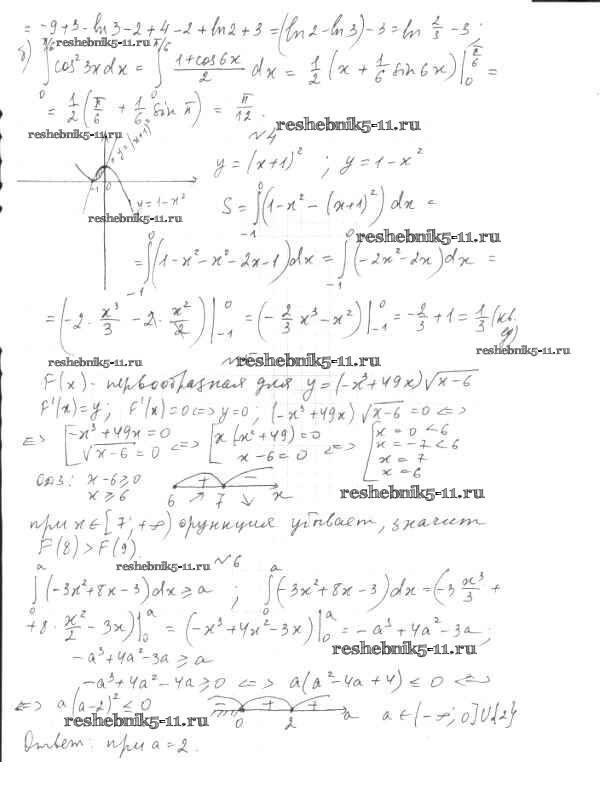 = -9+3-ln3-2+4-2+ln2+3 = (ln2-ln3)-3 = ln 2/3 - 3.
reshebnik5-11.ru
б) ∫₀^{π/6} cos²3x dx = ∫₀^{π/6} (1+cos6x)/2 dx = 1/2 (x + 1/6 sin6x) |₀^{π/6} =
= 1/2 (π/6 + 1/6 sin π) = π/12.
reshebnik5-11.ru
reshebnik5-11.ru
№4
y=(x+1)²
y = (x+1)² ; y = 1-x²
-1 0
y=1-x²
reshebnik5-11.ru
S = ∫₋₁⁰ (1-x² - (x+1)²) dx =
reshebnik5-11.ru
= ∫₋₁⁰ (1-x²-x²-2x-1)dx = ∫₋₁⁰ (-2x²-2x)dx =
= (-2·x³/3 - 2·x²/2) |₋₁⁰ = (-2/3 x³ - x²) |₋₁⁰ = -2/3 + 1 = 1/3 (кв. ед)
reshebnik5-11.ru
reshebnik5-11.ru
reshebnik5-11.ru
F(x) - первообразная для y = (-x³+49x)√x-6
F'(x)=y; F'(x)=0 <=> y=0; (-x³+49x)√x-6 = 0 <=>
<=> [-x³+49x=0 √x-6 = 0 <=> [x(x²+49)=0 x-6=0 <=> [x=0<6 x=-7<6 x=7 x=6
одз: x-6≥0
x≥6
+ -
6 7 x
reshebnik5-11.ru
при x∈[7;+∞) функция убывает, значит
F(8) > F(9).
reshebnik5-11.ru
№6
∫₀^a (-3x²+8x-3)dx ≥ a ; ∫₀^a (-3x²+8x-3)dx = (-3 x³/3 +
+8·x²/2 - 3x) |₀^a = (-x³+4x²-3x) |₀^a = -a³+4a²-3a;
reshebnik5-11.ru
-a³+4a²-3a ≥ a
-a³+4a²-4a ≥ 0 <=> a(a²-4a+4) ≤ 0 <=>
<=> a(a-2)² ≤ 0
- + +
0 2 a
a∈(-∞;0]∪{2}
reshebnik5-11.ru
Ответ: при a=2.